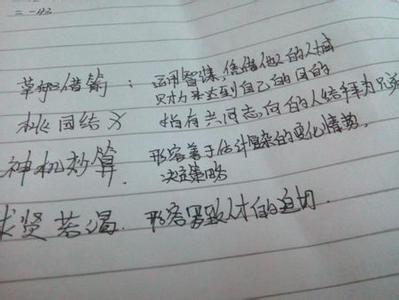 草船借箭：运用智谋，凭借他人的人力或
财力来达到自己的目的
桃园结义 指有共同志向的人结拜为兄弟
神机妙算. 形容善于估计复杂的变化情势,
决定策略
求贤若渴. 形容罗致人才的迫切.